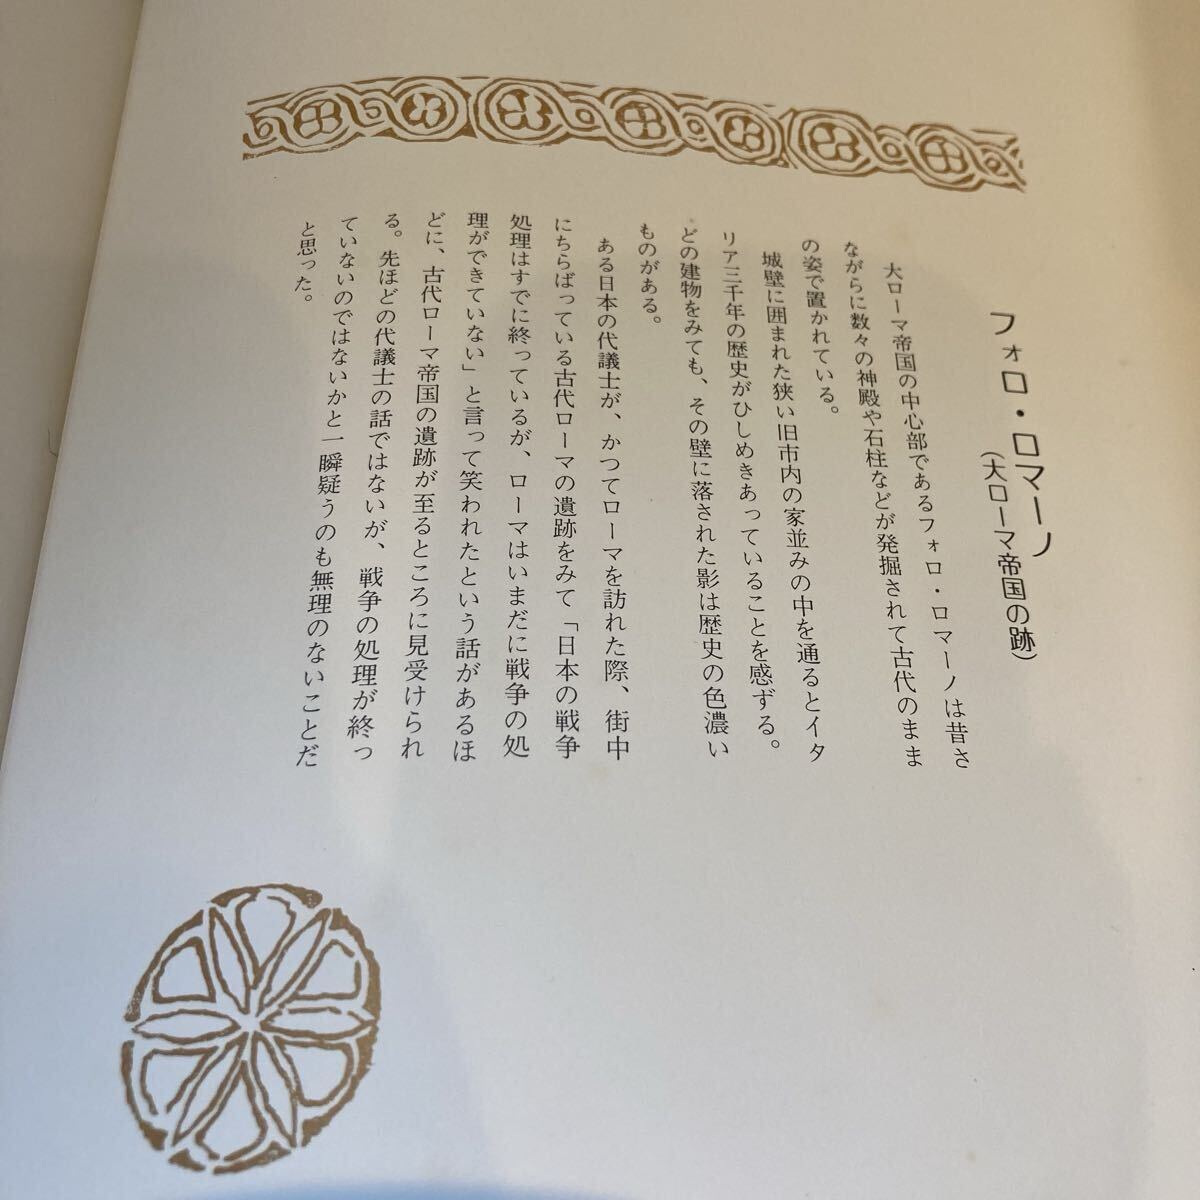 フォロ・ロマーノ
(大ローマ帝国の跡)
大ローマ帝国の中心部であるフォロ・ロマーノは昔さ
ながらに数々の神殿や石柱などが発掘されて古代のまま
の姿で置かれている。
城壁に囲まれた狭い旧市内の家並みの中を通るとイタ
リア三千年の歴史がひしめきあっていることを感ずる。
どの建物をみても、その壁に落された影は歴史の色濃い
ものがある。
ある日本の代議士が、かつてローマを訪れた際、街中
にちらばっている古代ローマの遺跡をみて「日本の戦争
処理はすでに終っているが、ローマはいまだに戦争の処
理ができていない」と言って笑われたという話があるほ
どに、古代ローマ帝国の遺跡が至るところに見受けられ
る。先ほどの代議士の話ではないが、戦争の処理が終っ
ていないのではないかと一瞬疑うのも無理のないことだ
と思った。